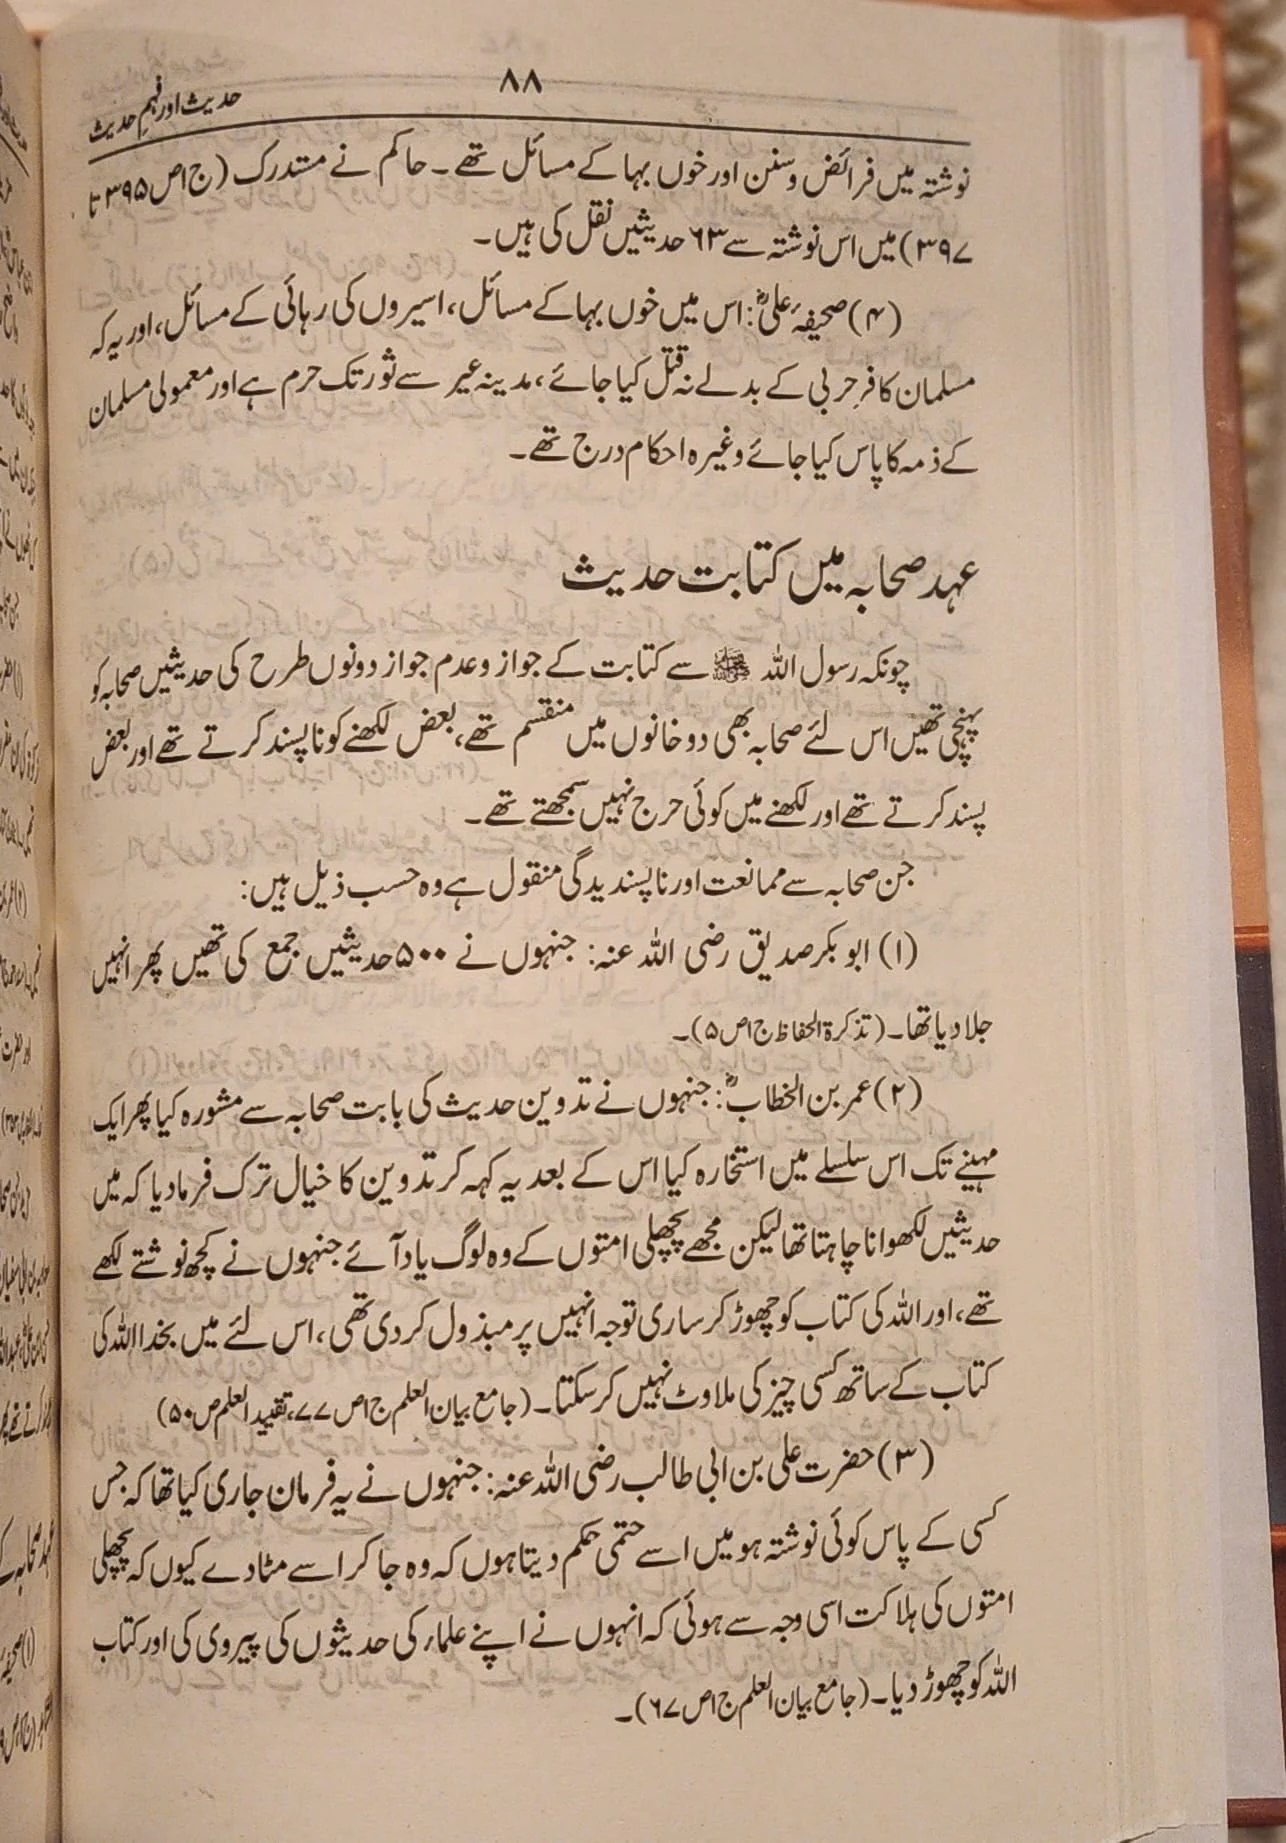 ۸۸
حدیث اور فہمِ حدیث
نوشتہ میں فرائض وسنن اور خوں بہا کے مسائل تھے۔ حاکم نے مستدرک (ج۱ص۳۹۵ تا
۳۹۷) میں اس نوشتہ سے ۶۳ حدیثیں نقل کی ہیں۔
(۴) صحیفۂ علیؓ: اس میں خوں بہا کے مسائل، اسیروں کی رہائی کے مسائل، اور یہ کہ
مسلمان کافرِ حربی کے بدلے نہ قتل کیا جائے، مدینہ عیر سے ثور تک حرم ہے اور معمولی مسلمان
کے ذمہ کا پاس کیا جائے وغیرہ احکام درج تھے۔
عہد صحابہ میں کتابت حدیث
چونکہ رسول اللہ ﷺ سے کتابت کے جواز وعدم جواز دونوں طرح کی حدیثیں صحابہ کو
پہنچی تھیں اس لئے صحابہ بھی دو خانوں میں منقسم تھے، بعض لکھنے کو ناپسند کرتے تھے اور بعض
پسند کرتے تھے اور لکھنے میں کوئی حرج نہیں سمجھتے تھے۔
جن صحابہ سے ممانعت اور ناپسندیدگی منقول ہے وہ حسب ذیل ہیں:
(۱) ابو بکر صدیق رضی اللہ عنہ: جنہوں نے ۵۰۰ حدیثیں جمع کی تھیں پھر انہیں
جلا دیا تھا۔ (تذکرۃ الحفاظ ج۱ص۵)۔
(۲) عمر بن الخطابؓ: جنہوں نے تدوین حدیث کی بابت صحابہ سے مشورہ کیا پھر ایک
مہینے تک اس سلسلے میں استخارہ کیا اس کے بعد یہ کہہ کر تدوین کا خیال ترک فرما دیا کہ میں
حدیثیں لکھوانا چاہتا تھا لیکن مجھے پچھلی امتوں کے وہ لوگ یاد آئے جنہوں نے کچھ نوشتے لکھے
تھے، اور اللہ کی کتاب کو چھوڑ کر ساری توجہ انہیں پر مبذول کر دی تھی، اس لئے میں بخدا اللہ کی
کتاب کے ساتھ کسی چیز کی ملاوٹ نہیں کر سکتا۔ (جامع بیان العلم ج۱ص۷۷، تقیید العلم ص۵۰)
(۳) حضرت علی بن ابی طالب رضی اللہ عنہ: جنہوں نے یہ فرمان جاری کیا تھا کہ جس
کسی کے پاس کوئی نوشتہ ہو میں اسے حتمی حکم دیتا ہوں کہ وہ جا کر اسے مٹا دے کیوں کہ پچھلی
امتوں کی ہلاکت اسی وجہ سے ہوئی کہ انہوں نے اپنے علماء کی حدیثوں کی پیروی کی اور کتاب
اللہ کو چھوڑ دیا۔ (جامع بیان العلم ج۱ص۶۷)۔